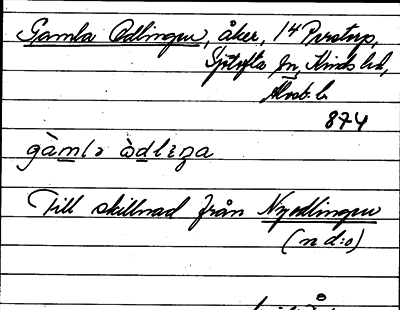 Gamla Odlingen, åker, 14 Perstorp,
Sjötofta sn, Kinds hd,
Älvsb. l.
874
gàmlɜ òdlɪŋa
Till skillnad från Nyodlingen
(n d:o)